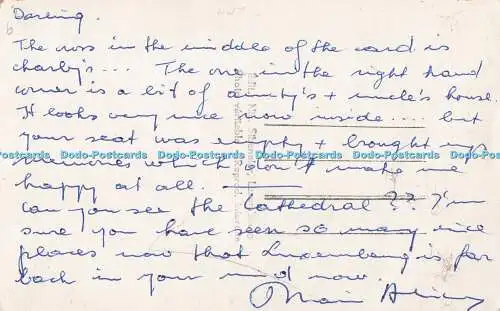 Darling.
The ross in the middle of the card is
charby's... The one in the right hand
corner is a bit of aunty's + uncle's house.
It looks very nice now inside.... but
your seat was empty + brought up
memories which don't make me
Dodo-Postcards Dodo-Postcards Dodo-Postcards Dodo-Postcards
happy at all.
can you see the Cathedral?? I'm
sure you have seen so many nice
places now that Luxembourg is far
back in your mind now.